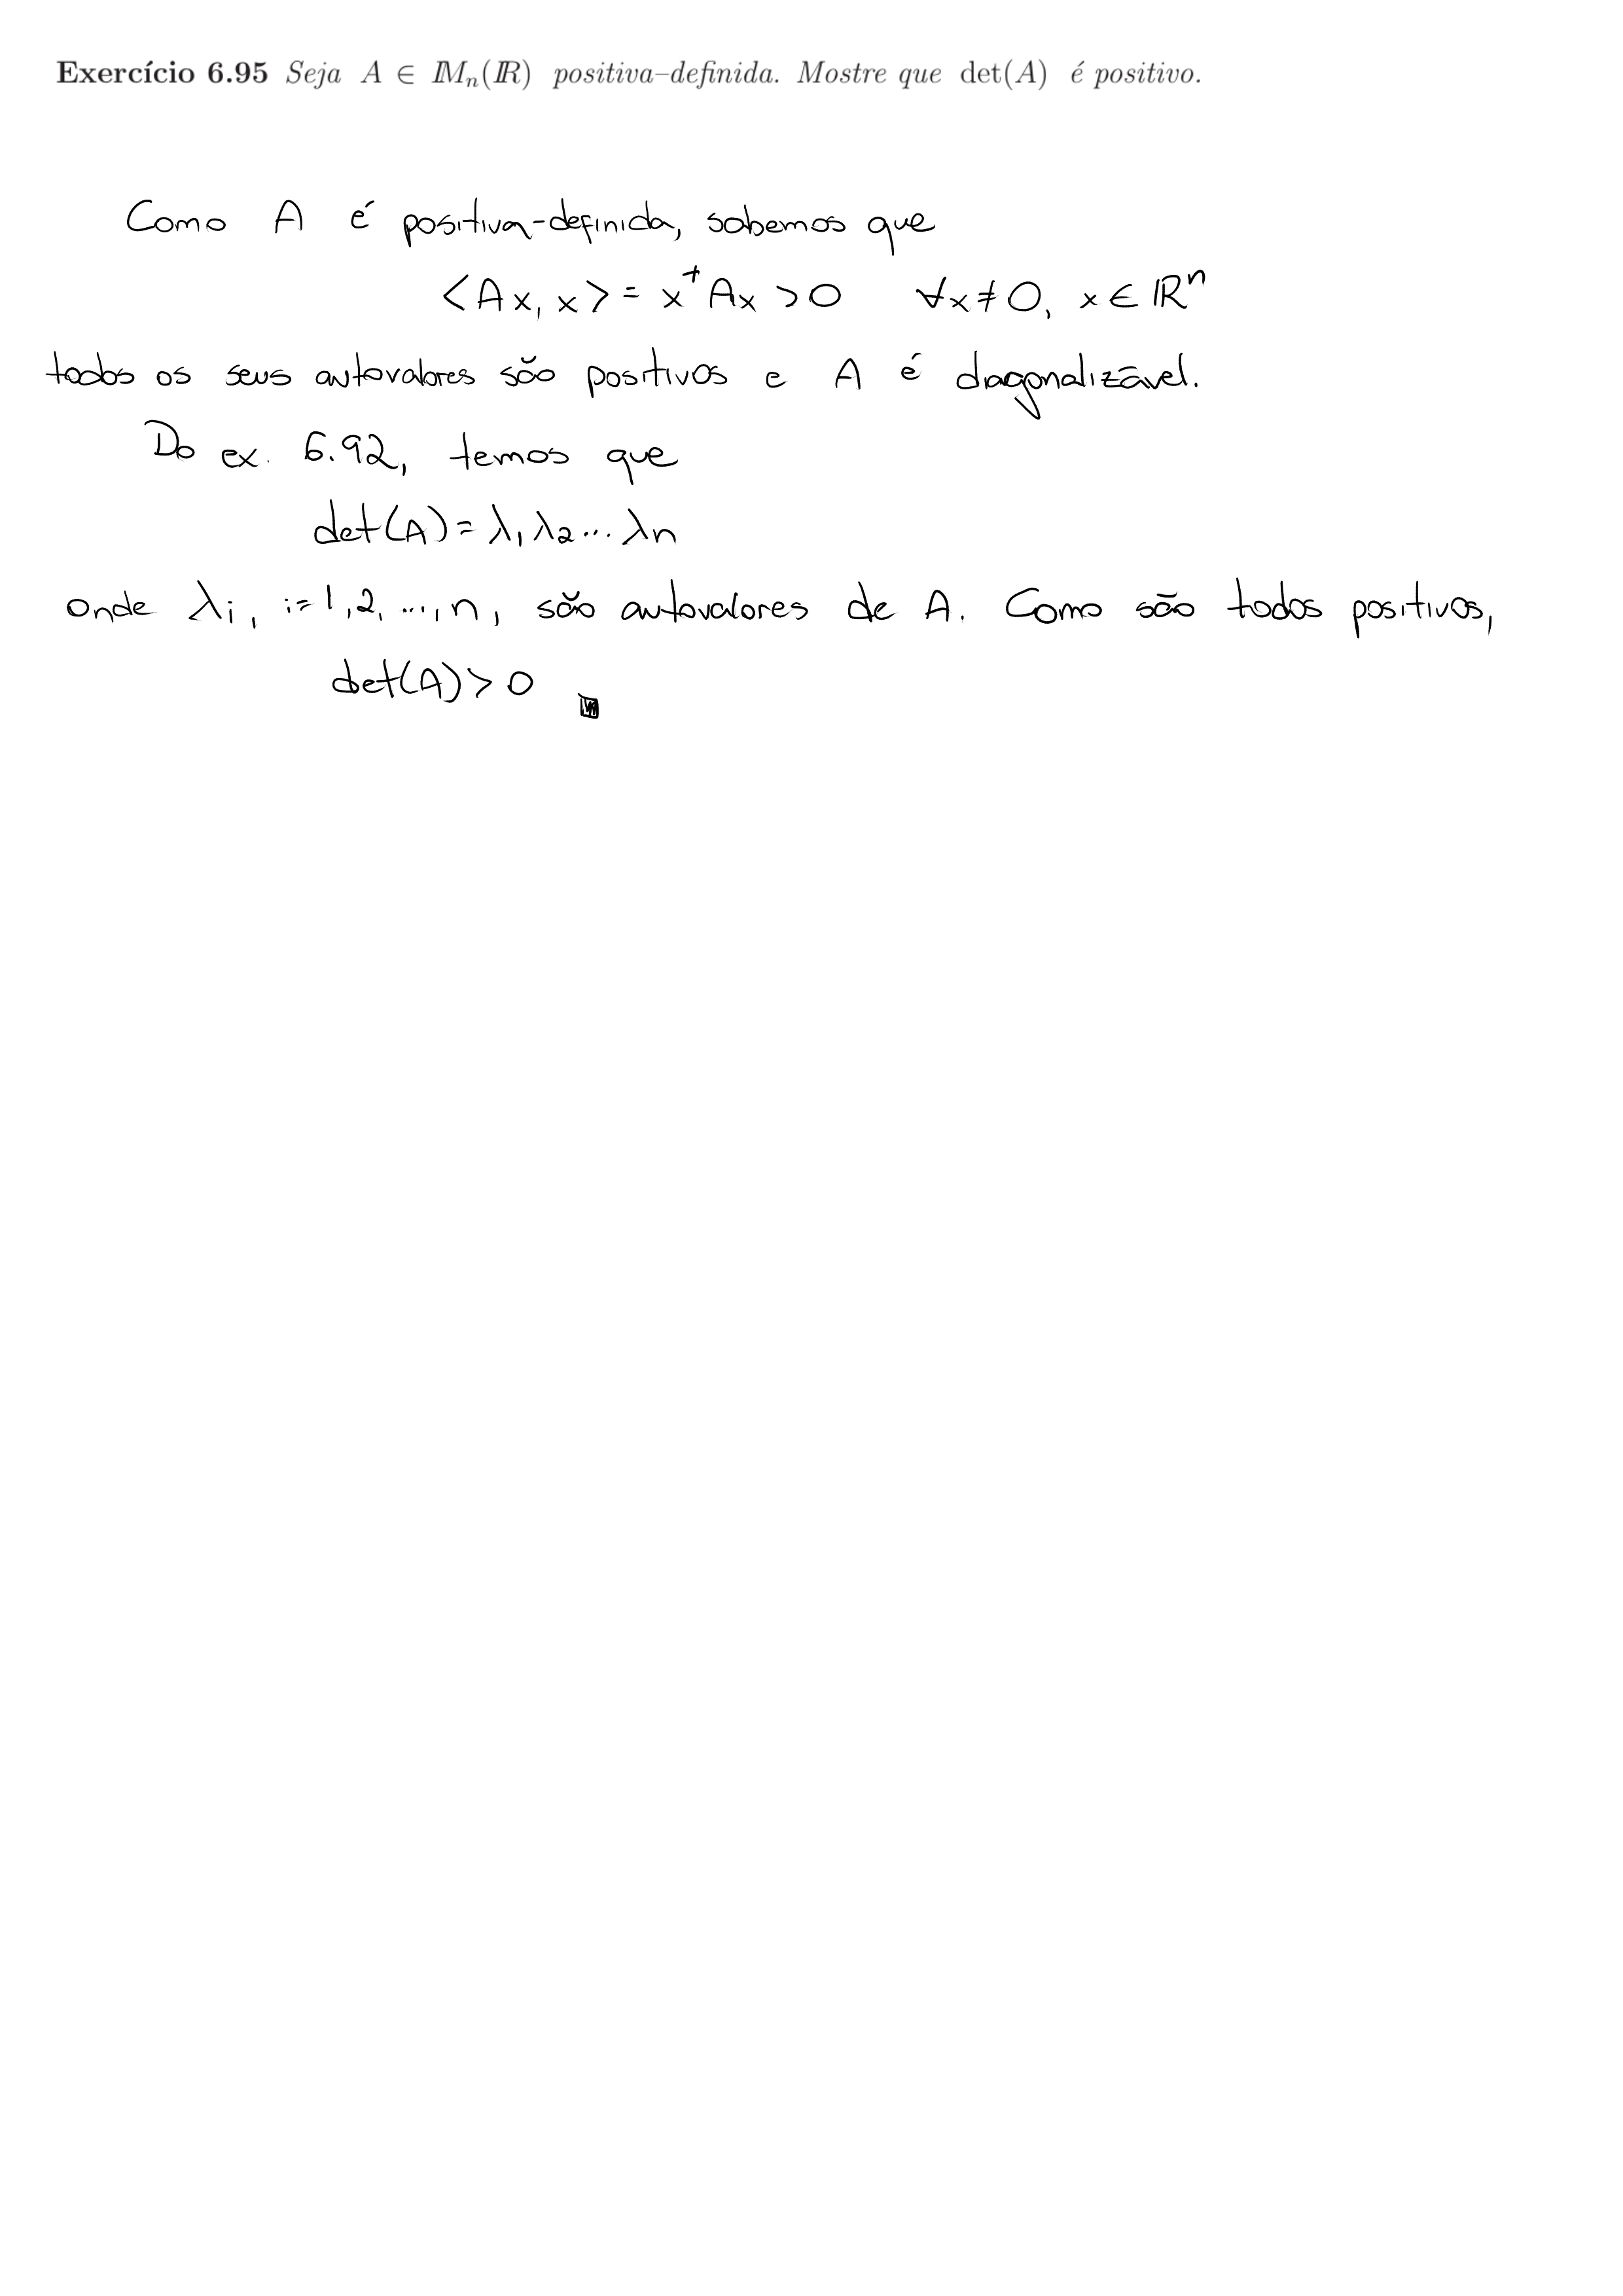 Exercício 6.95 Seja A ∈ 𝕄ₙ(ℝ) positiva–definida. Mostre que det(A) é positivo.
Como A é positiva-definida, sabemos que
<Ax, x> = xᵗAx > 0 ∀x ≠ 0, x ∈ ℝⁿ
todos os seus autovalores são positivos e A é diagonalizável.
Do ex. 6.92, temos que
det(A) = λ₁λ₂...λn
onde λi, i=1,2,...,n, são autovalores de A. Como são todos positivos,
det(A) > 0